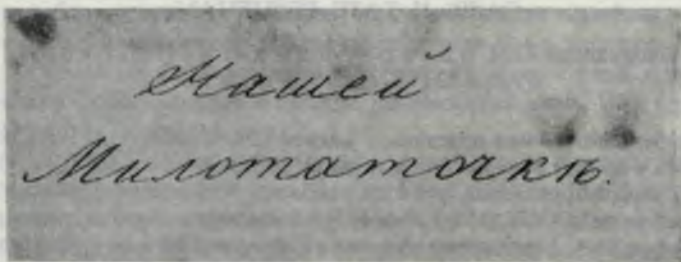 Нашей
Милотаточкѣ.